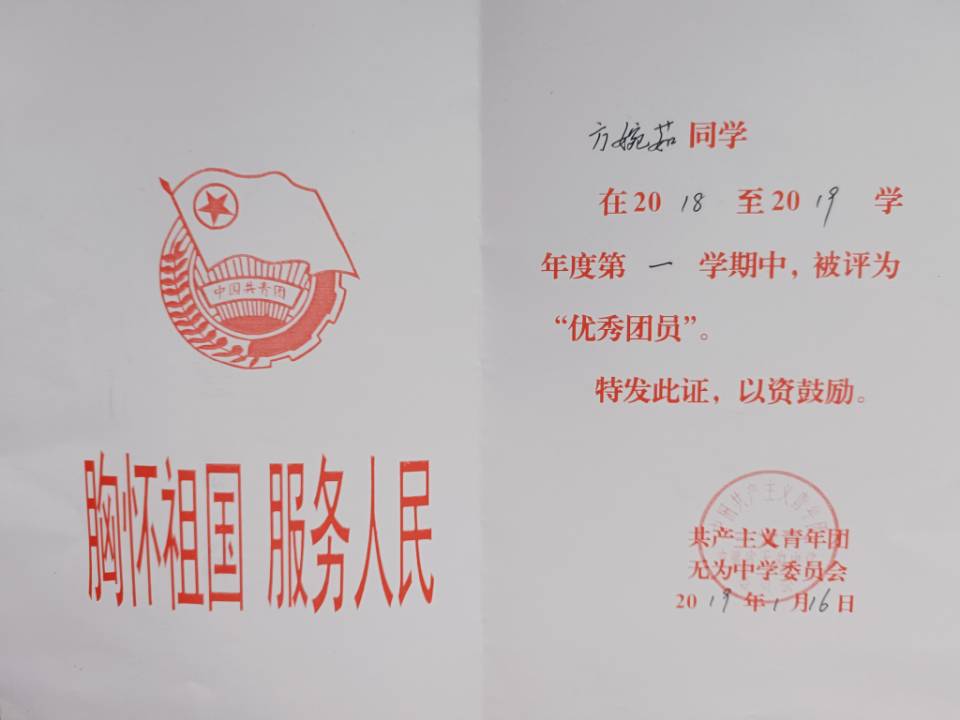 中国共青团
胸怀祖国 服务人民
方婉茹同学
在2018至2019学
年度第一学期中，被评为
“优秀团员”。
特发此证，以资鼓励。
中国共产主义青年团
共产主义青年团
无为中学委员会
2019年1月16日